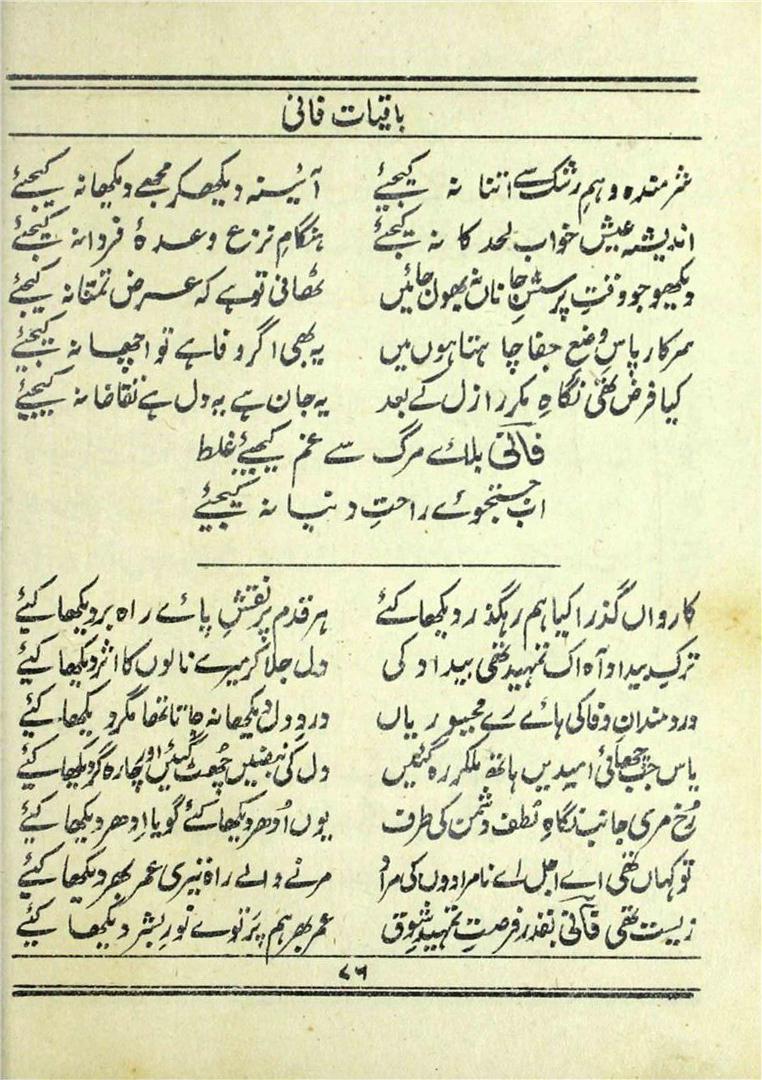 باقیات فانی
شرمندہ وہمِ رشک سے اتنا نہ کیجئے آئینہ دیکھ کر مجھے دیکھا نہ کیجئے
اندیشہ عیشِ خواب لحد کا نہ کیجئے ہنگامِ نزع وعدۂ فردا نہ کیجئے
دیکھیو جو وقتِ پرسشِ جاناں نہ بھول جائیں ٹھانی تو ہے کہ عرض تمنا نہ کیجئے
سرکار پاسِ وضع جفا چاہتا ہوں میں یہ بھی اگر وفا ہے تو اچھا نہ کیجئے
کیا فرض تھی نگاہِ مکرر ازل کے بعد یہ جان ہے یہ دل ہے تقاضا نہ کیجئے
فانی بلائے مرگ سے غم کیجئے غلط
اب جستجوئے راحتِ دنیا نہ کیجئے
کارواں گذرا کیا ہم رہگذر دیکھا کئے ہر قدم پر نقشِ پائے راہ بر دیکھا کئے
ترکِ بیداد آہ اک تمہید تھی بیداد کی دل جلا کر میرے نالوں کا اثر دیکھا کئے
دردمندانِ وفا کی ہائے رے مجبوریاں دردِ دل دیکھا نہ جاتا تھا مگر دیکھا کئے
یاس جب چھائی امیدیں ہاتھ ملکر رہ گئیں دل کی نبضیں چھوٹ گئیں اور چارہ گر دیکھا کئے
رُخ مری جانب نگاہِ لطف دشمن کی طرف یوں اُودھر دیکھا کئے گویا اِدھر دیکھا کئے
تو کہاں تھی اے اجل اے نامرادوں کی مراد مرنے والے راہ تیری عمر بھر دیکھا کئے
زیست تھی فانی بقدرِ فرصتِ تمہیدِ شوق عمر بھر ہم پرتوِ نورِ بشر دیکھا کئے
۷۶